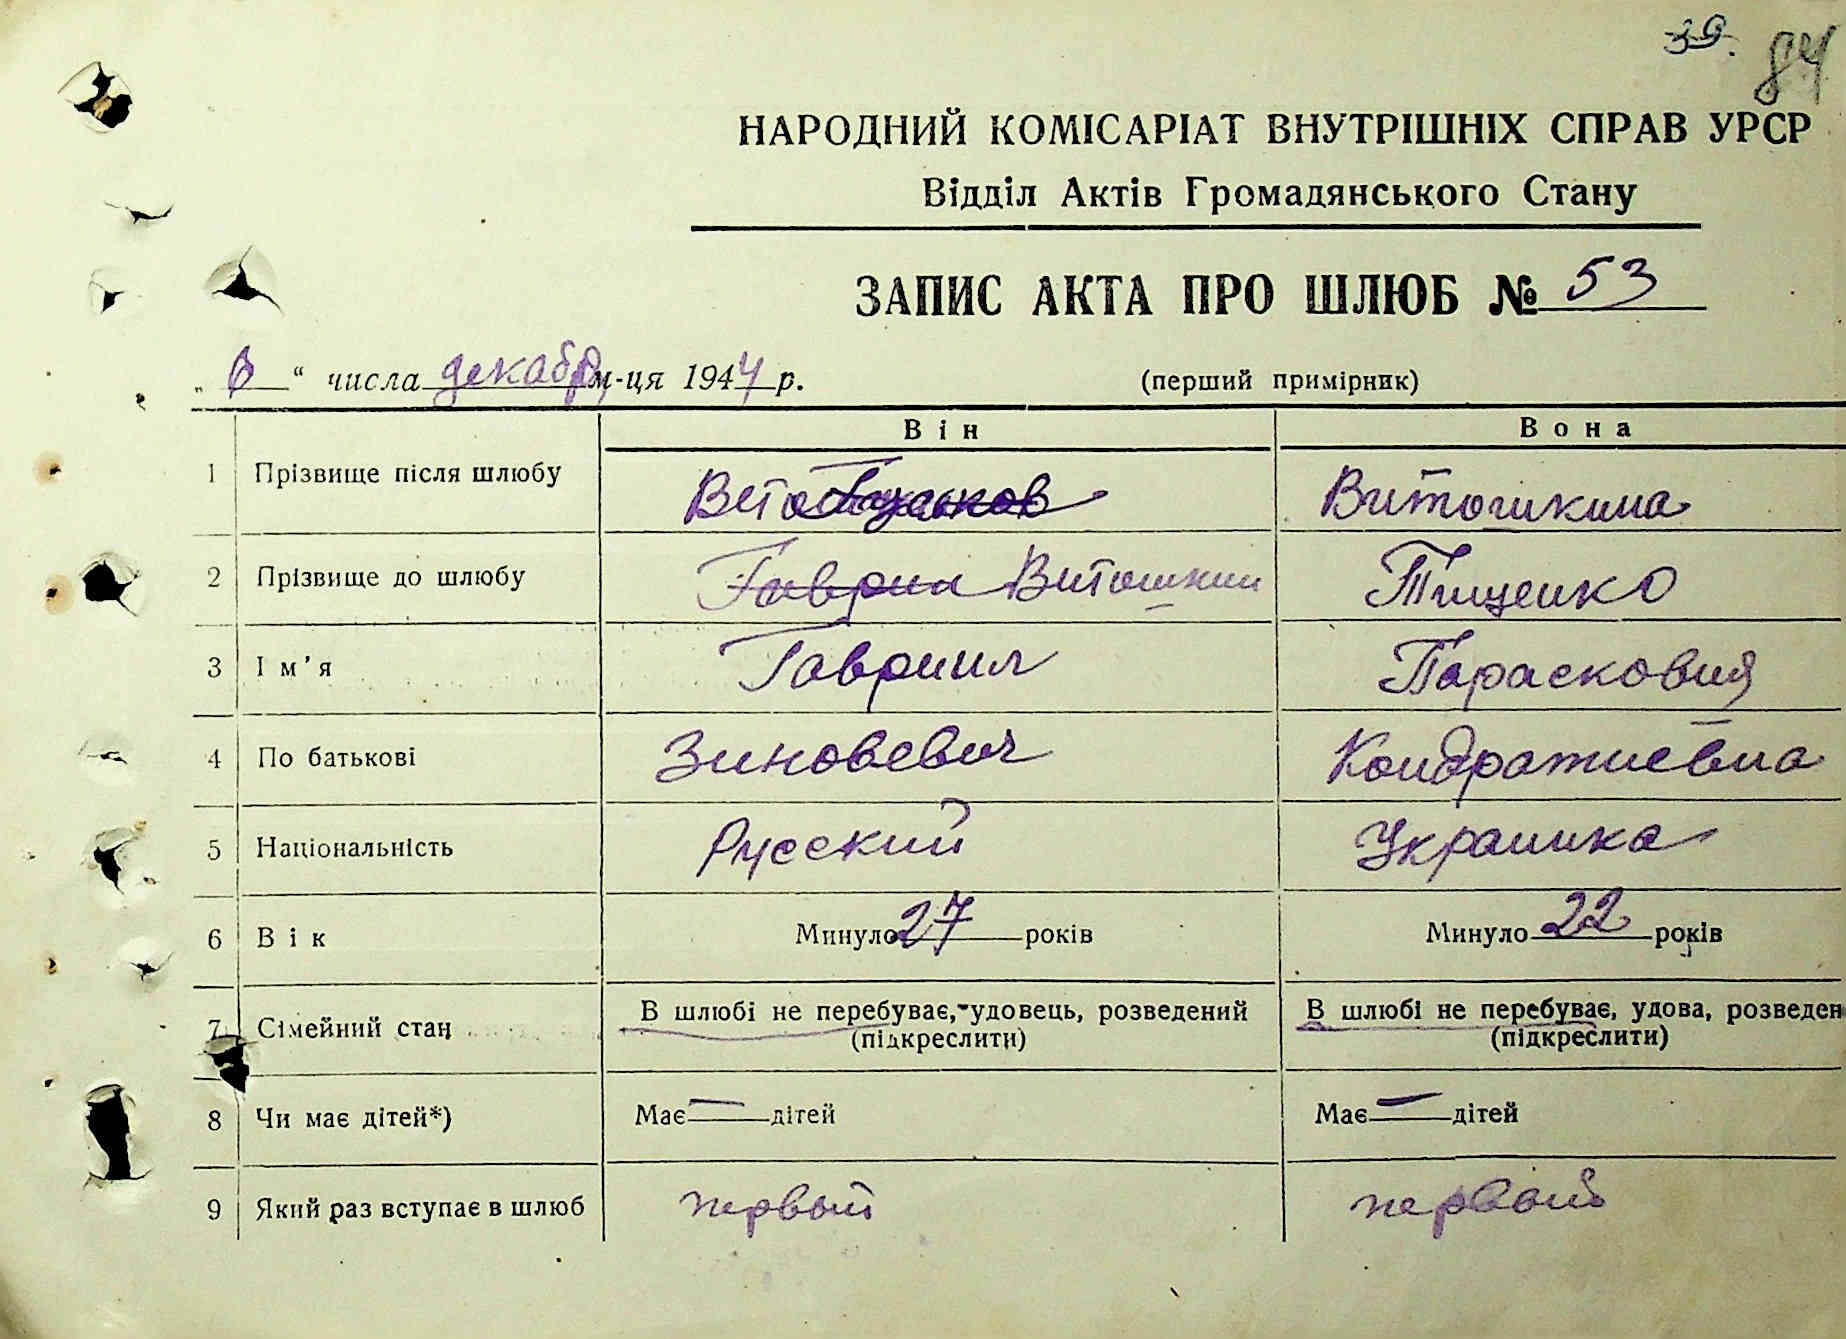 39. 84
НАРОДНИЙ КОМІСАРІАТ ВНУТРІШНІХ СПРАВ УРСР
Відділ Актів Громадянського Стану
ЗАПИС АКТА ПРО ШЛЮБ № 53
„ 6 “ числа декабр м-ця 1944 р. (перший примірник)
Він Вона
1 Прізвище після шлюбу Витошкина
2 Прізвище до шлюбу Гаврил Витошкин Тищенко
3 Ім’я Гавриил Парасковия
4 По батькові Зиновевич Кондратиевна
5 Національність Русский Украинка
6 Вік Минуло 27 років Минуло 22 років
7 Сімейний стан В шлюбі не перебуває, удовець, розведений В шлюбі не перебуває, удова, розведен
(підкреслити) (підкреслити)
8 Чи має дітей*) Має — дітей Має — дітей
9 Який раз вступає в шлюб первый первый